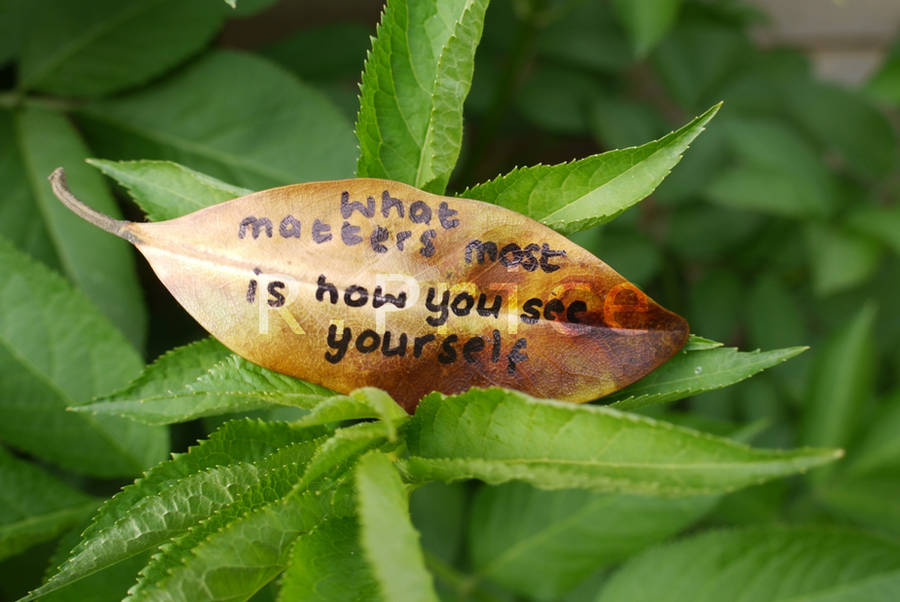 what
matters most
is how you see
yourself
R.Prince